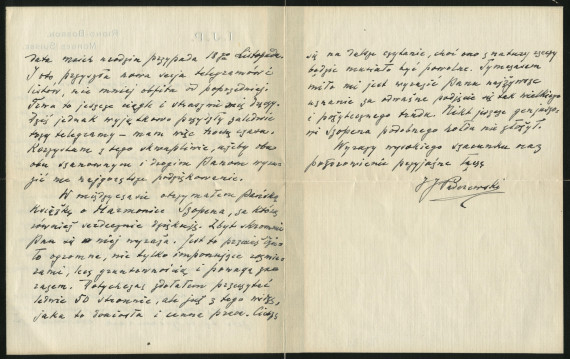 data moich urodzin przypada 18go Listopada.
I oto, przyszła nowa serja telegramów i
listów, nie mniej obfita od poprzedniej.
Trwa to jeszcze ciągle i utrudnia mój
Dziś jednak wyjątkowo przyszły zaledwie
trzy telegramy – mam więc trochę czasu.
Korzystam z tego skwapliwie, ażeby oby-
dwu szanownym i drogim Panom wyra-
zić me najgorętsze podziękowanie.
W międzyczasie otrzymałem Pańską
Książkę o Harmonice Szopena, za którą
również serdecznie dziękuję. Zbyt skromnie
Pan się o niej wyraża. Jest to przecież dzie-
ło ogromne, nie tylko imponujące rozmia-
rami, lecz gruntownością i powagą za-
razem. Dotychczas zdołałem przeczytać
ledwie 50 stronnic, ale już z tego widzę,
jaka to doniosła i cenna praca. Cieszę
się na dalsze czytanie, choć ono z natury rzeczy
będzie musiało być powolne. Tymczasem
miło mi jest wyrazić Panu najżywsze
uznanie za odważne podjęcie się tak wielkiego
i pożytecznego trudu. Nikt jeszcze genjuszo-
wi Szopena podobnego hołdu nie złożył.
Wyrazy wysokiego szacunku wraz
pozdrowienia przyjazne łączę
I J Paderewski